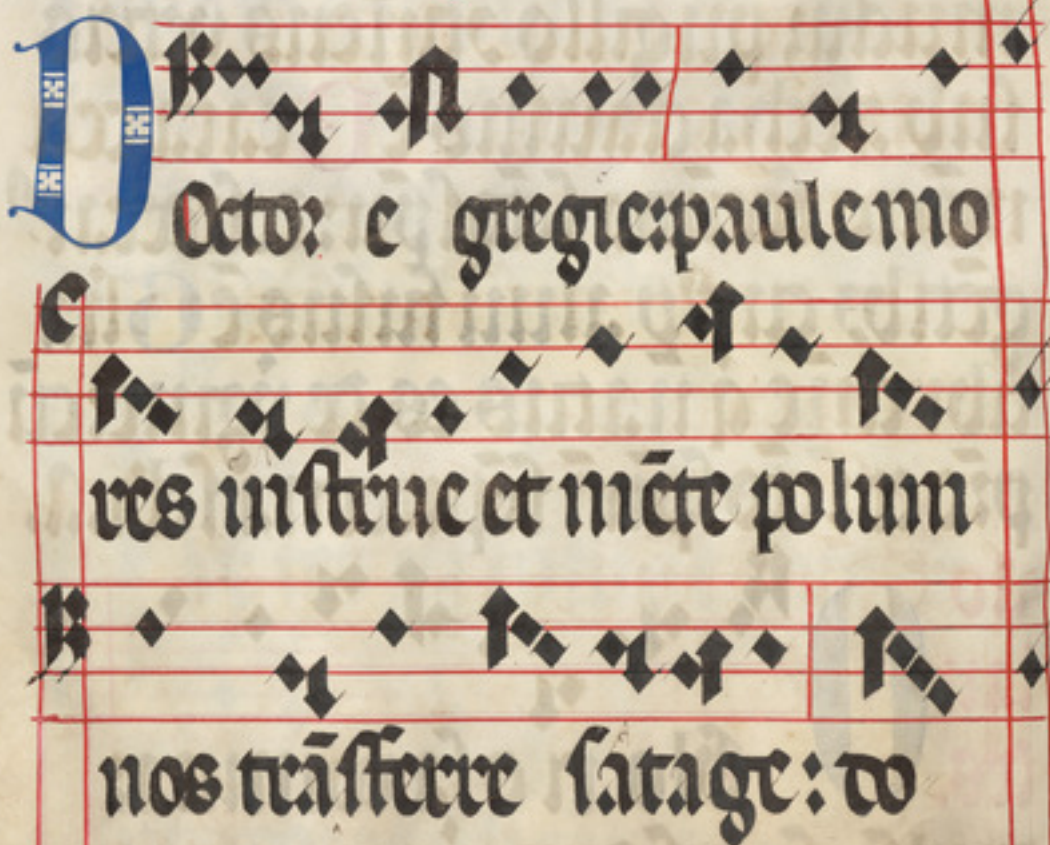 DOctor e gregie:paule mo
res instrue et mēte polum
nos trāsferre satage: do